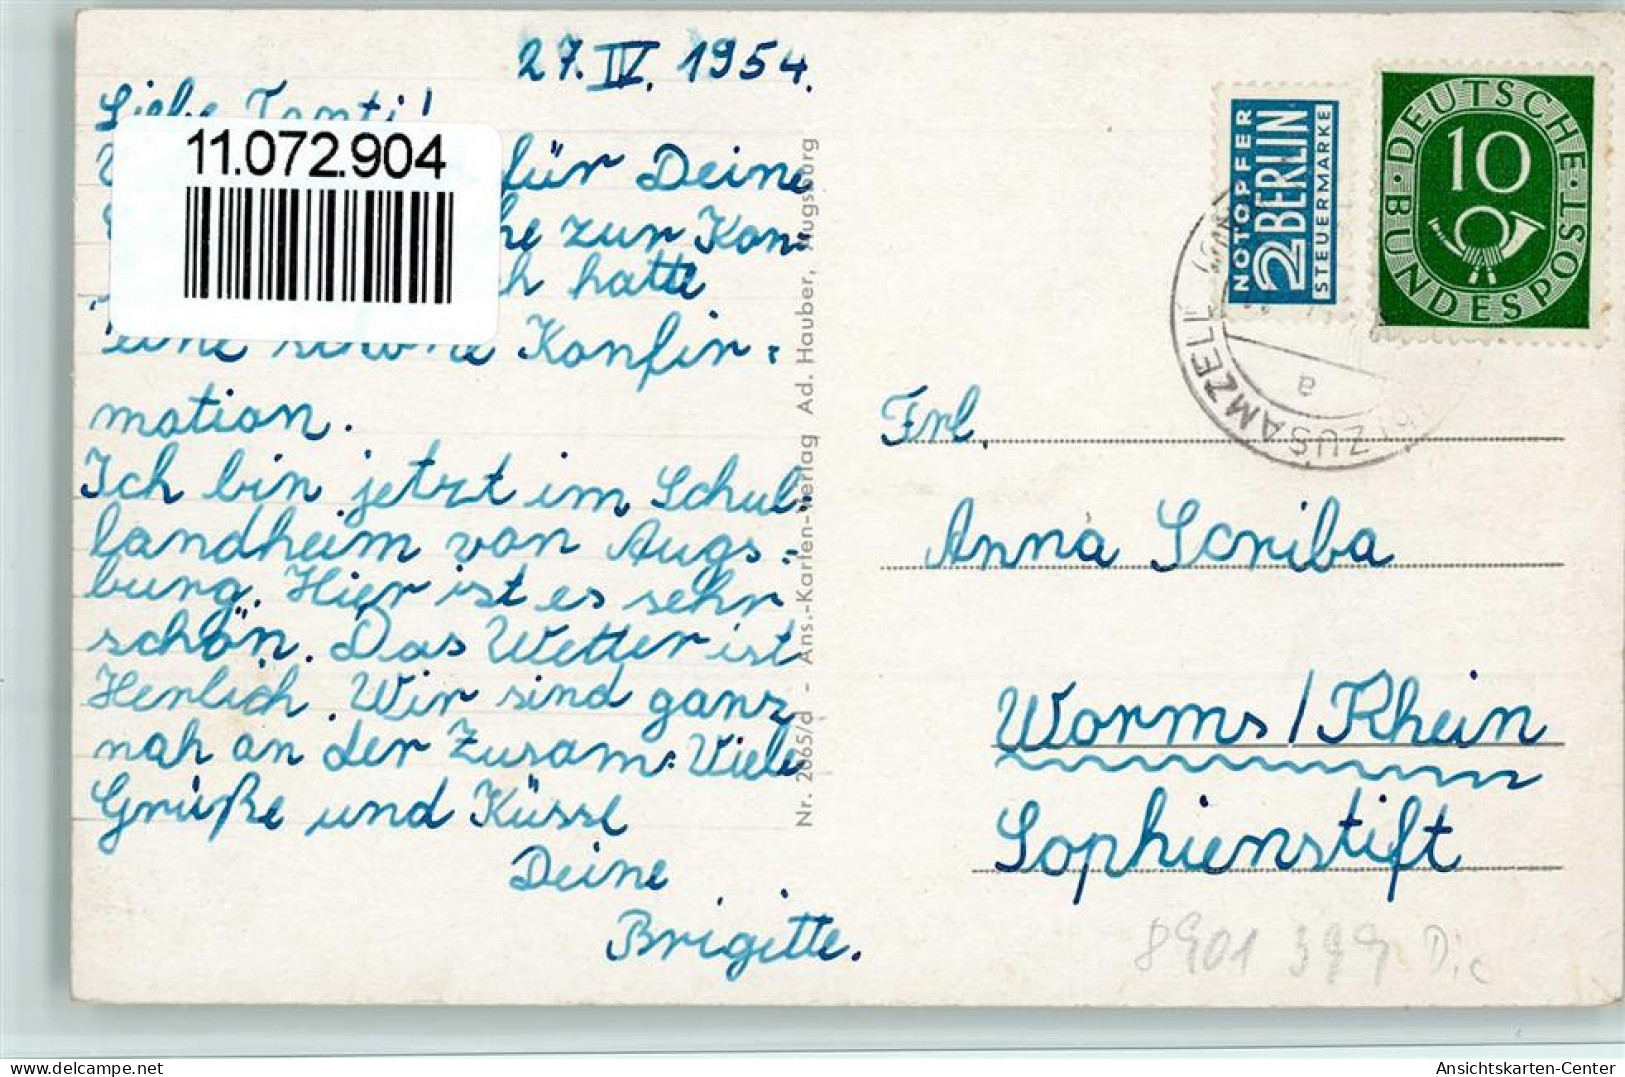 27. IV. 1954.
Liebe Tanti!
11.072.904
für Deine
zur Kon-
hatte
eine schöne Konfir-
mation.
Ich bin jetzt im Schul-
landheim von Augs-
burg. Hier ist es sehr
schön. Das Wetter ist
Herlich. Wir sind ganz
nah an der Zusam. Viele
Grüße und Küsse
Deine
Brigitte.
Nr. 2065/d - Ans.-Karten-Verlag Ad. Hauber, Augsburg
NOTOPFER
2 BERLIN
STEUERMARKE
DEUTSCHE BUNDESPOST
10
ZUSAMZELL
a
Frl.
Anna Scriba
Worms/Rhein
Sophienstift
8901 399 Dic
Ansichtskarten-Center